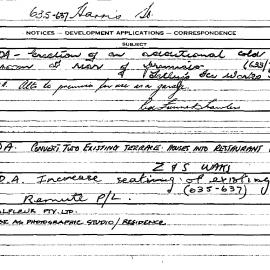 635-637 Harris St.
NOTICES — DEVELOPMENT APPLICATIONS — CORRESPONDENCE
SUBJECT
DA - Erection of an additional cold
room at rear of premises (635/
Alts to premises for use as a garage.
D.A. CONVERT TWO EXISTING TERRACE HOUSES INTO RESTAURANT
Z & S WAKS
D.A. Increase seating of existing
(635-637)
Remute P/L.
PTY. LTD.
USE AS PHOTOGRAPHIC STUDIO / RESIDENCE.